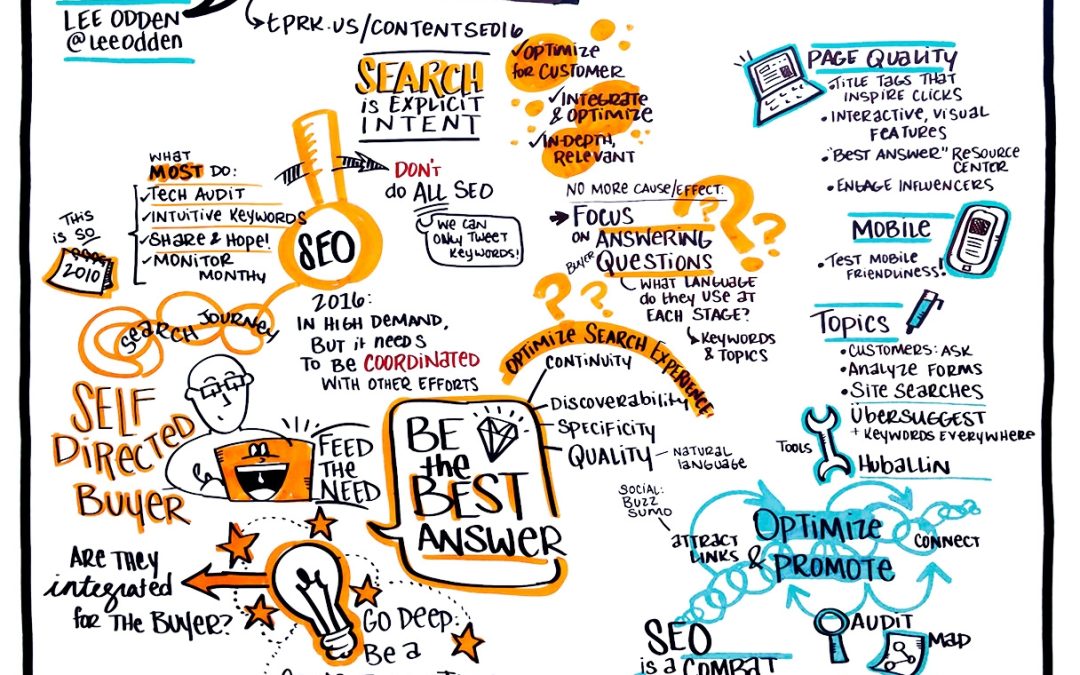 LEE ODDEN
@LEEODDEN
tPRK.US/CONTENTSEO16
SEARCH
IS EXPLICIT
INTENT
✓OPTIMIZE
for CUSTOMER
✓INTEGRATE
& OPTIMIZE
✓IN-DEPTH,
RELEVANT
WHAT
MOST DO:
✓TECH AUDIT
✓INTUITIVE KEYWORDS
✓SHARE & HOPE!
✓MONITOR
MONTHY
THIS
IS SO
2010
SEO
DON'T
do ALL SEO
WE CAN
ONLY TWEET
KEYWORDS!
NO MORE CAUSE/EFFECT:
FOCUS
ON ANSWERING
BUYER QUESTIONS
WHAT LANGUAGE
do THEY USE AT
EACH STAGE?
KEYWORDS
& TOPICS
SEARCH JOURNEY
2016:
IN HIGH DEMAND,
BUT IT NEEDS
TO BE COORDINATED
WITH OTHER EFFORTS
SELF
DIRECTED
BUYER
FEED
THE
NEED
OPTIMIZE SEARCH EXPERIENCE
CONTINUITY
DISCOVERABILITY
SPECIFICITY
QUALITY – NATURAL
LANGUAGE
BE
the
BEST
ANSWER
ARE THEY
integrated
for THE BUYER?
GO DEEP:
BE A
PAGE QUALITY
•TITLE TAGS THAT
INSPIRE CLICKS
•INTERACTIVE, VISUAL
FEATURES
•"BEST ANSWER" RESOURCE
CENTER
•ENGAGE INFLUENCERS
MOBILE
•TEST MOBILE
FRIENDLINESS!
TOPICS
•CUSTOMERS: ASK
•ANALYZE FORMS
•SITE SEARCHES
TOOLS
ÜBERSUGGEST
+ KEYWORDS EVERYWHERE
HUBALLIN
SOCIAL:
BUZZ
SUMO
ATTRACT
LINKS
OPTIMIZE
& PROMOTE
CONNECT
AUDIT
MAP
SEO
IS A COMBAT